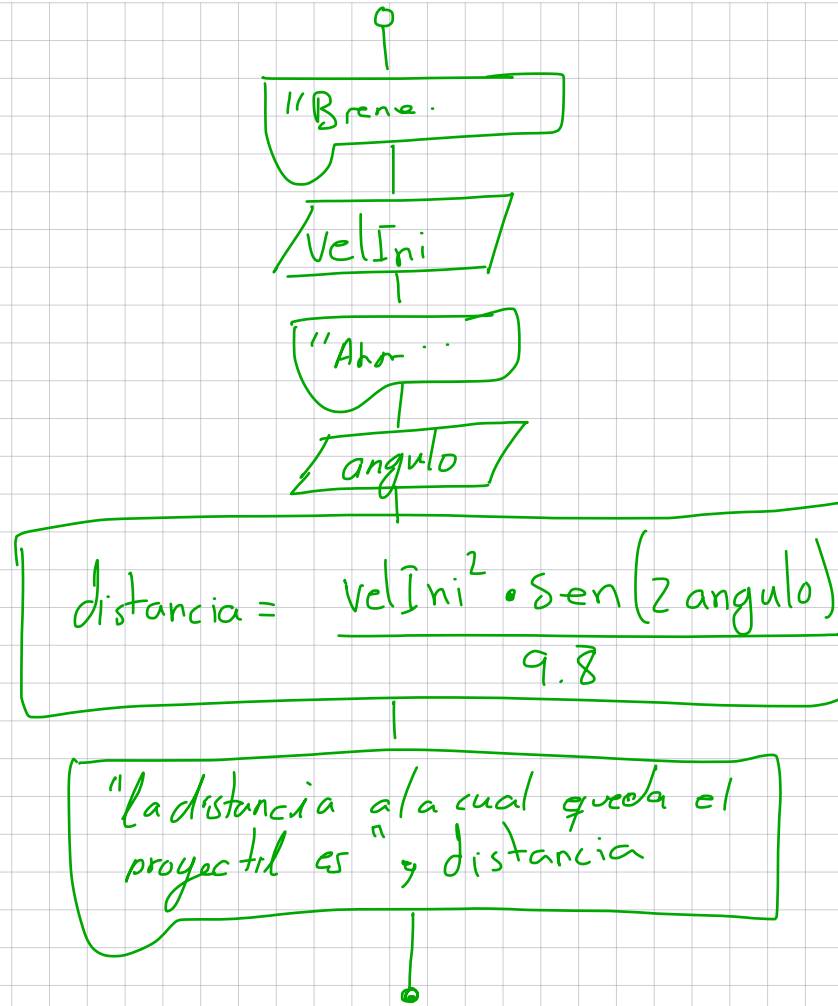 "Brene.
VelIni
"Ahor ..
angulo
distancia = velIni² • Sen(2 angulo)
9.8
"la distancia a la cual queda el
proyectil es", distancia